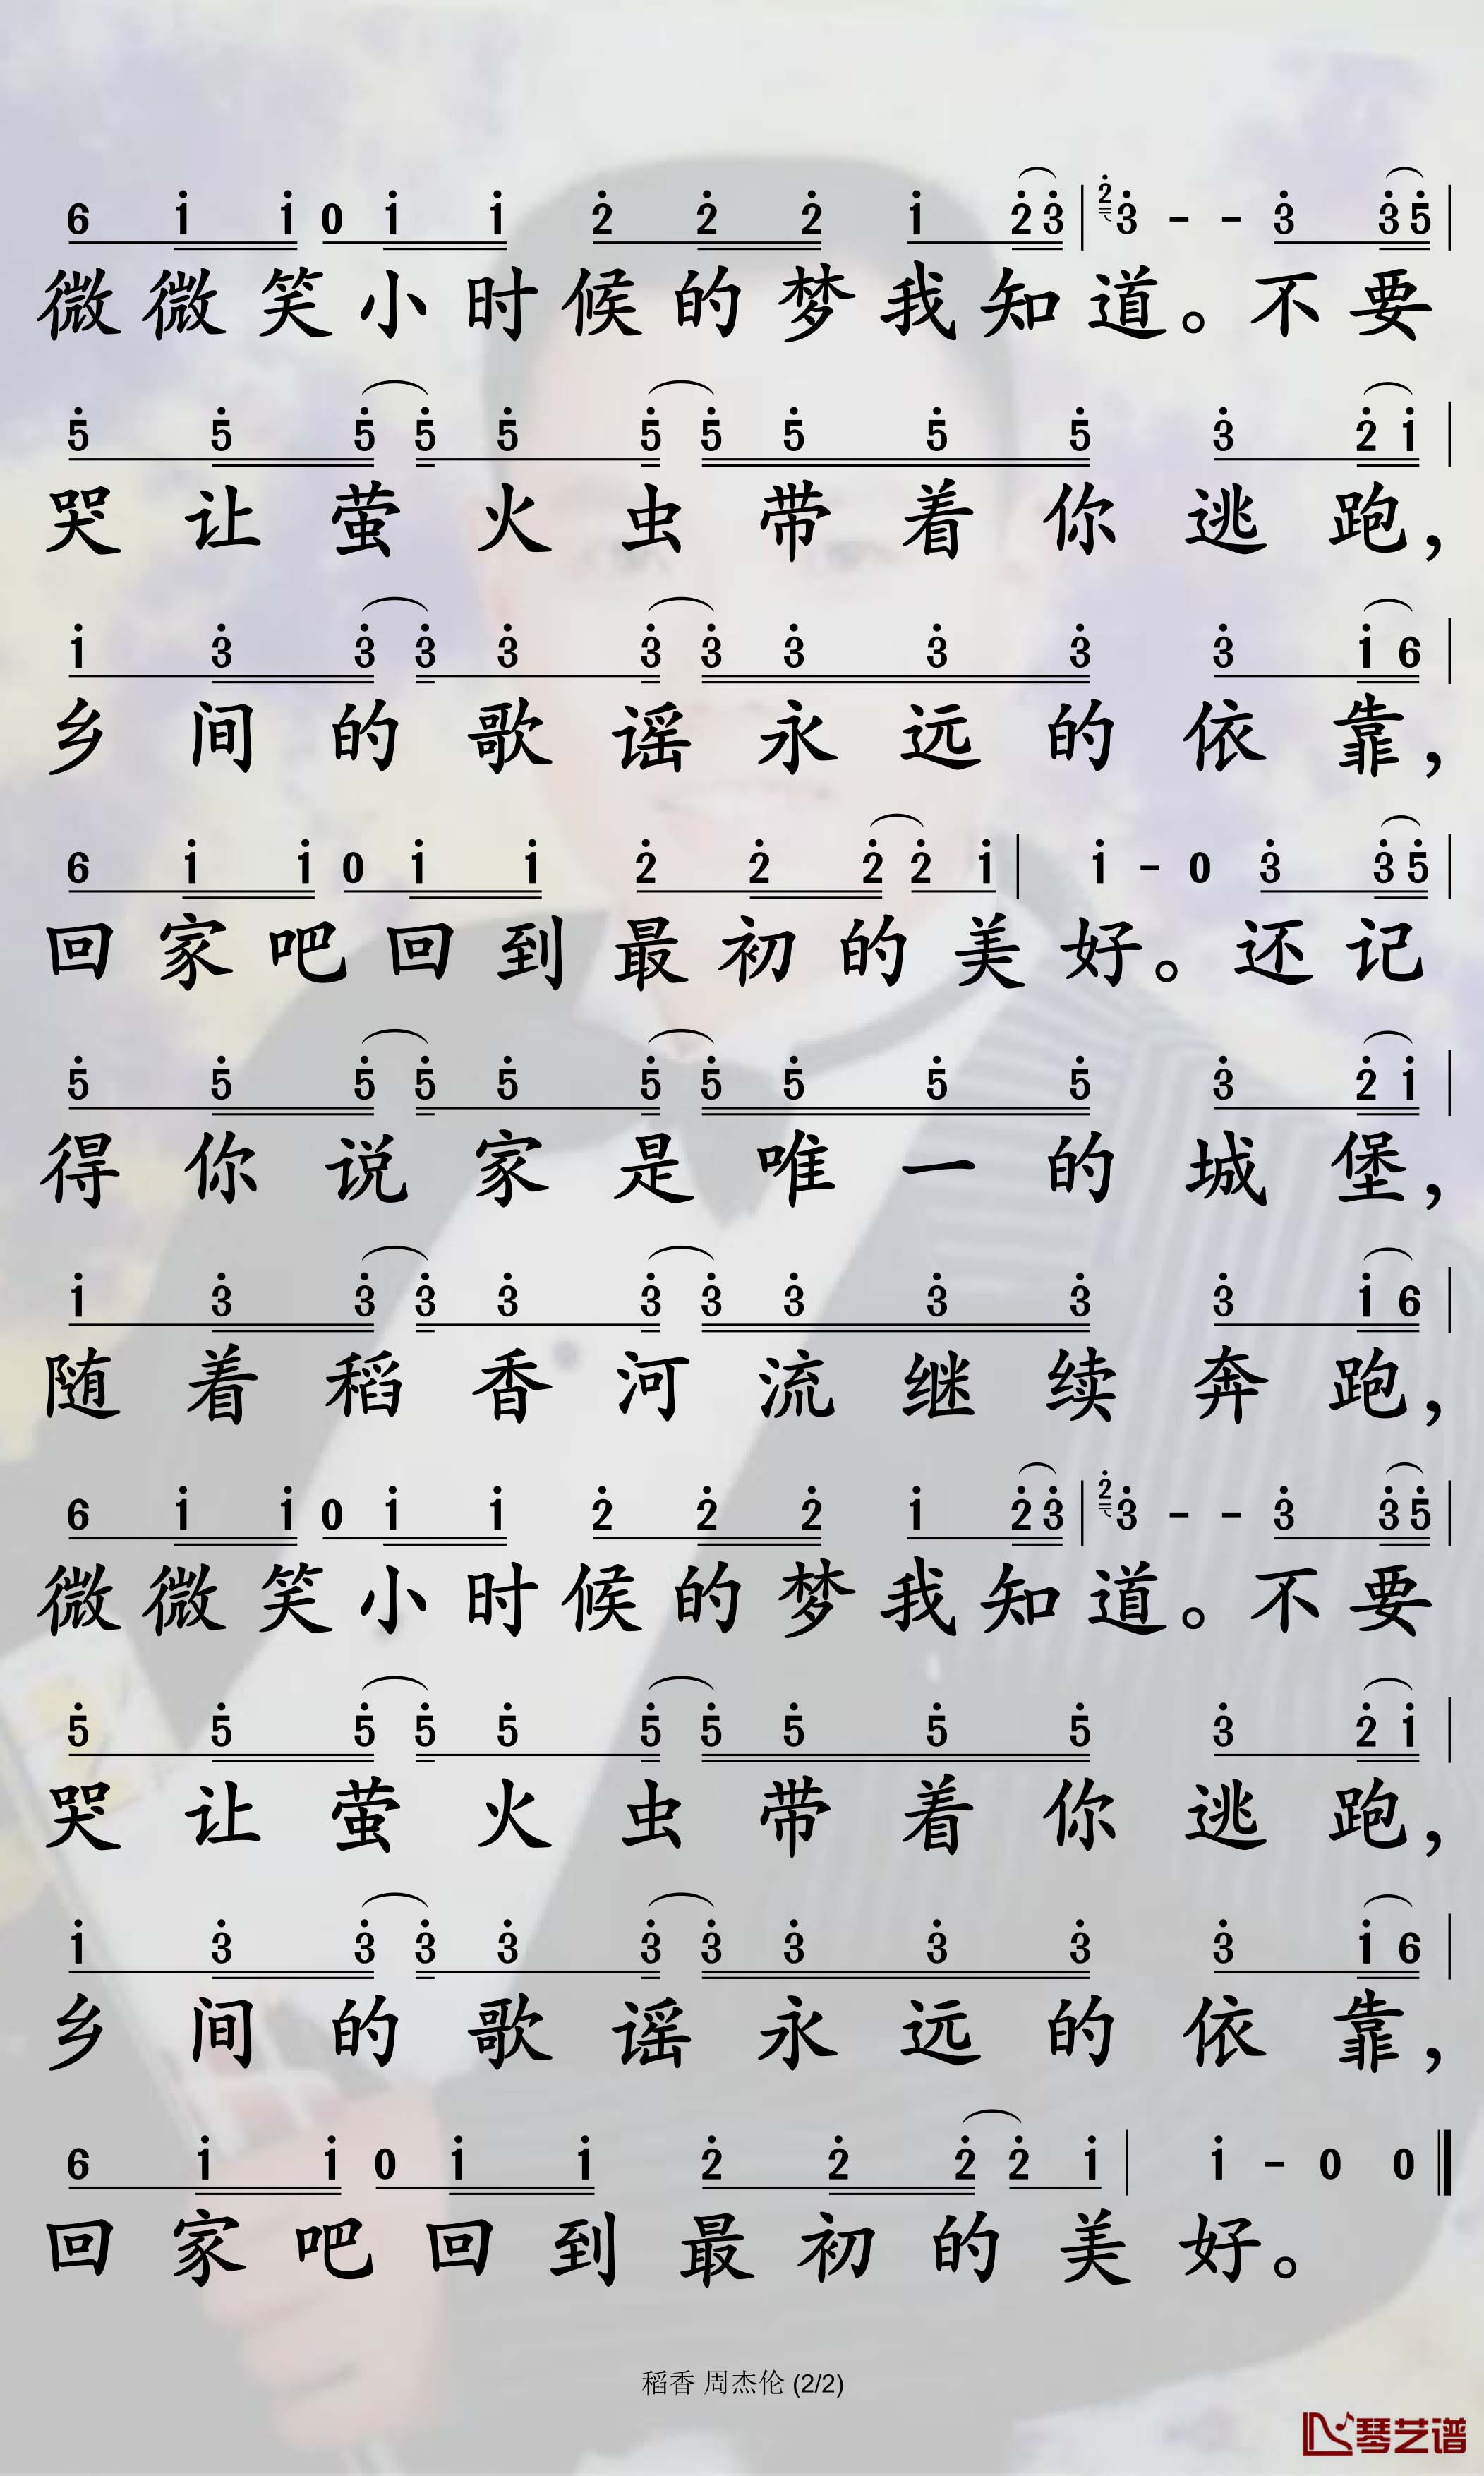 6 1 1 0 1 1 2 2 2 1 2 3 | 2 3 - - 3 3 5 |
微微笑小时候的梦我知道。不要
5 5 5 5 5 5 5 5 5 5 3 2 1 |
哭让萤火虫带着你逃跑，
1 3 3 3 3 3 3 3 3 3 3 1 6 |
乡间的歌谣永远的依靠，
6 1 1 0 1 1 2 2 2 2 1 | 1 - 0 3 3 5 |
回家吧回到最初的美好。还记
5 5 5 5 5 5 5 5 5 5 3 2 1 |
得你说家是唯一的城堡，
1 3 3 3 3 3 3 3 3 3 3 1 6 |
随着稻香河流继续奔跑，
6 1 1 0 1 1 2 2 2 1 2 3 | 2 3 - - 3 3 5 |
微微笑小时候的梦我知道。不要
5 5 5 5 5 5 5 5 5 5 3 2 1 |
哭让萤火虫带着你逃跑，
1 3 3 3 3 3 3 3 3 3 3 1 6 |
乡间的歌谣永远的依靠，
6 1 1 0 1 1 2 2 2 2 1 | 1 - 0 0
回家吧回到最初的美好。
稻香 周杰伦 (2/2)
琴艺谱